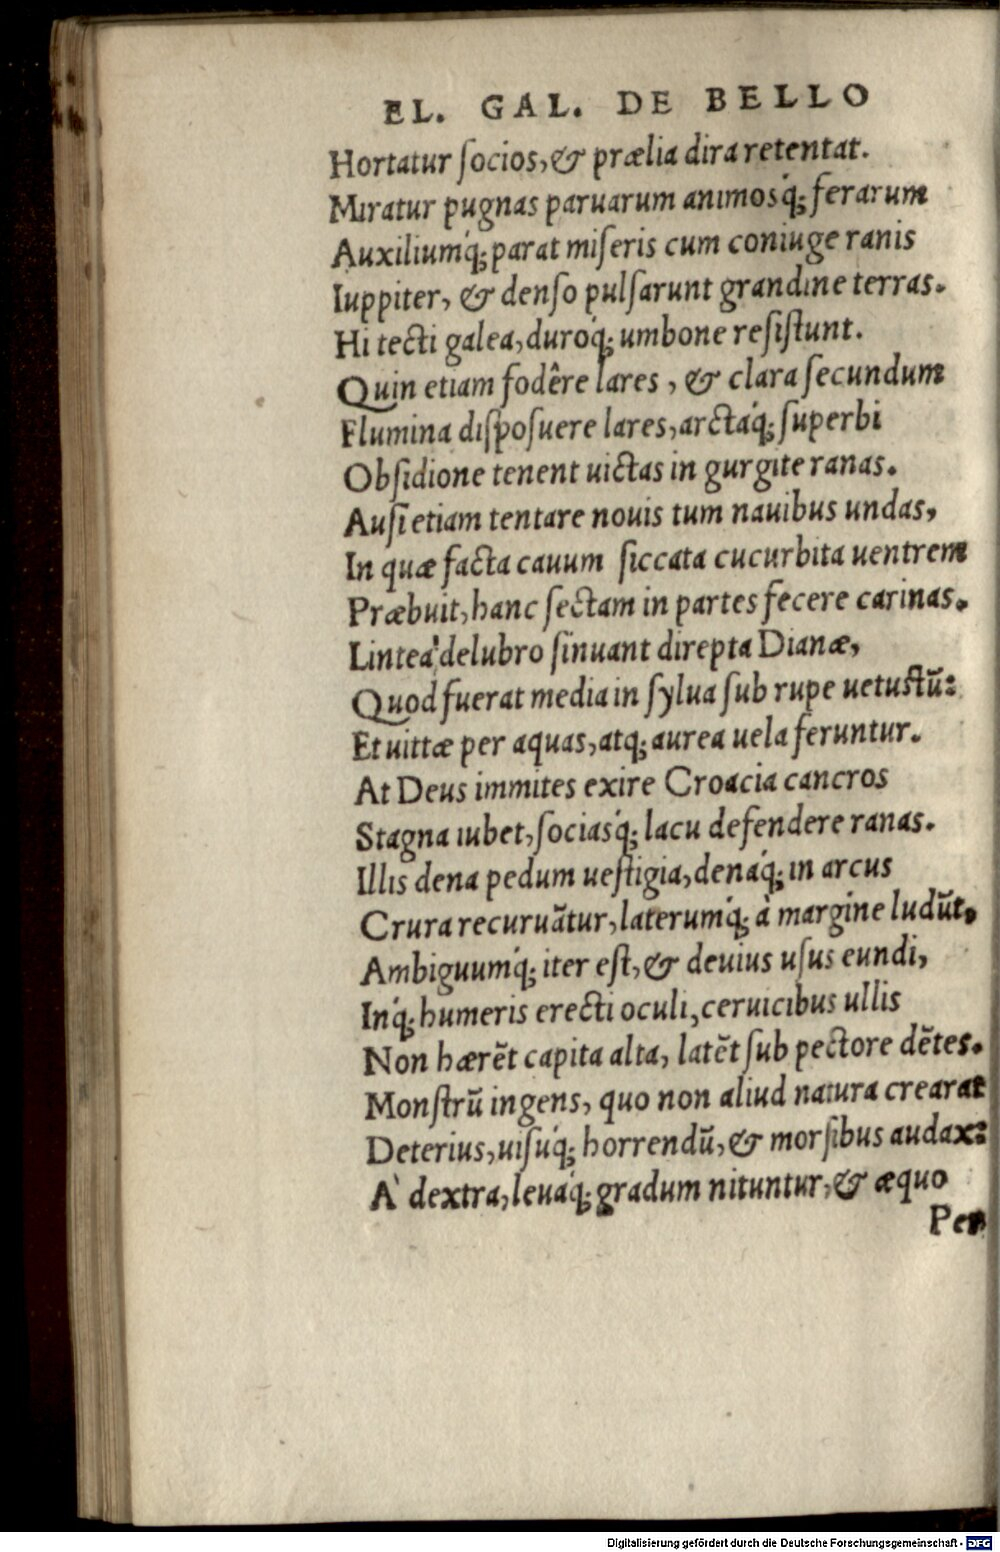 EL. GAL. DE BELLO
Hortatur ſocios, & prælia dira retentat.
Miratur pugnas paruarum animosq́; ferarum
Auxiliumq́; parat miſeris cum coniuge ranis
Iuppiter, & denſo pulſarunt grandine terras.
Hi tecti galea, duroq́; umbone reſiſtunt.
Quin etiam fodêre lares, & clara ſecundum
Flumina diſpoſuere lares, arctaq́; ſuperbi
Obſidione tenent uictas in gurgite ranas.
Auſi etiam tentare nouis tum nauibus undas,
In quæ facta cauum ſiccata cucurbita uentrem
Præbuit, hanc ſectam in partes fecere carinas.
Linteà delubro ſinuant direpta Dianæ,
Quod fuerat media in ſylua ſub rupe uetuſtũ:
Et uittæ per aquas, atq; aurea uela feruntur.
At Deus immites exire Croacia cancros
Stagna iubet, ſociasq́; lacu defendere ranas.
Illis dena pedum ueſtigia, denaq́; in arcus
Crura recuruãtur, laterumq́; à margine ludũt,
Ambiguumq́; iter eſt, & deuius uſus eundi,
Inq́; humeris erecti oculi, ceruicibus ullis
Non hærẽt capita alta, latẽt ſub pectore dẽtes.
Monſtrũ ingens, quo non aliud natura crearat
Deterius, uiſuq́; horrendũ, & morſibus audax:
A` dextra, leuaq́; gradum nituntur, & æquo
Per
Digitalisierung gefördert durch die Deutsche Forschungsgemeinschaft - DFG